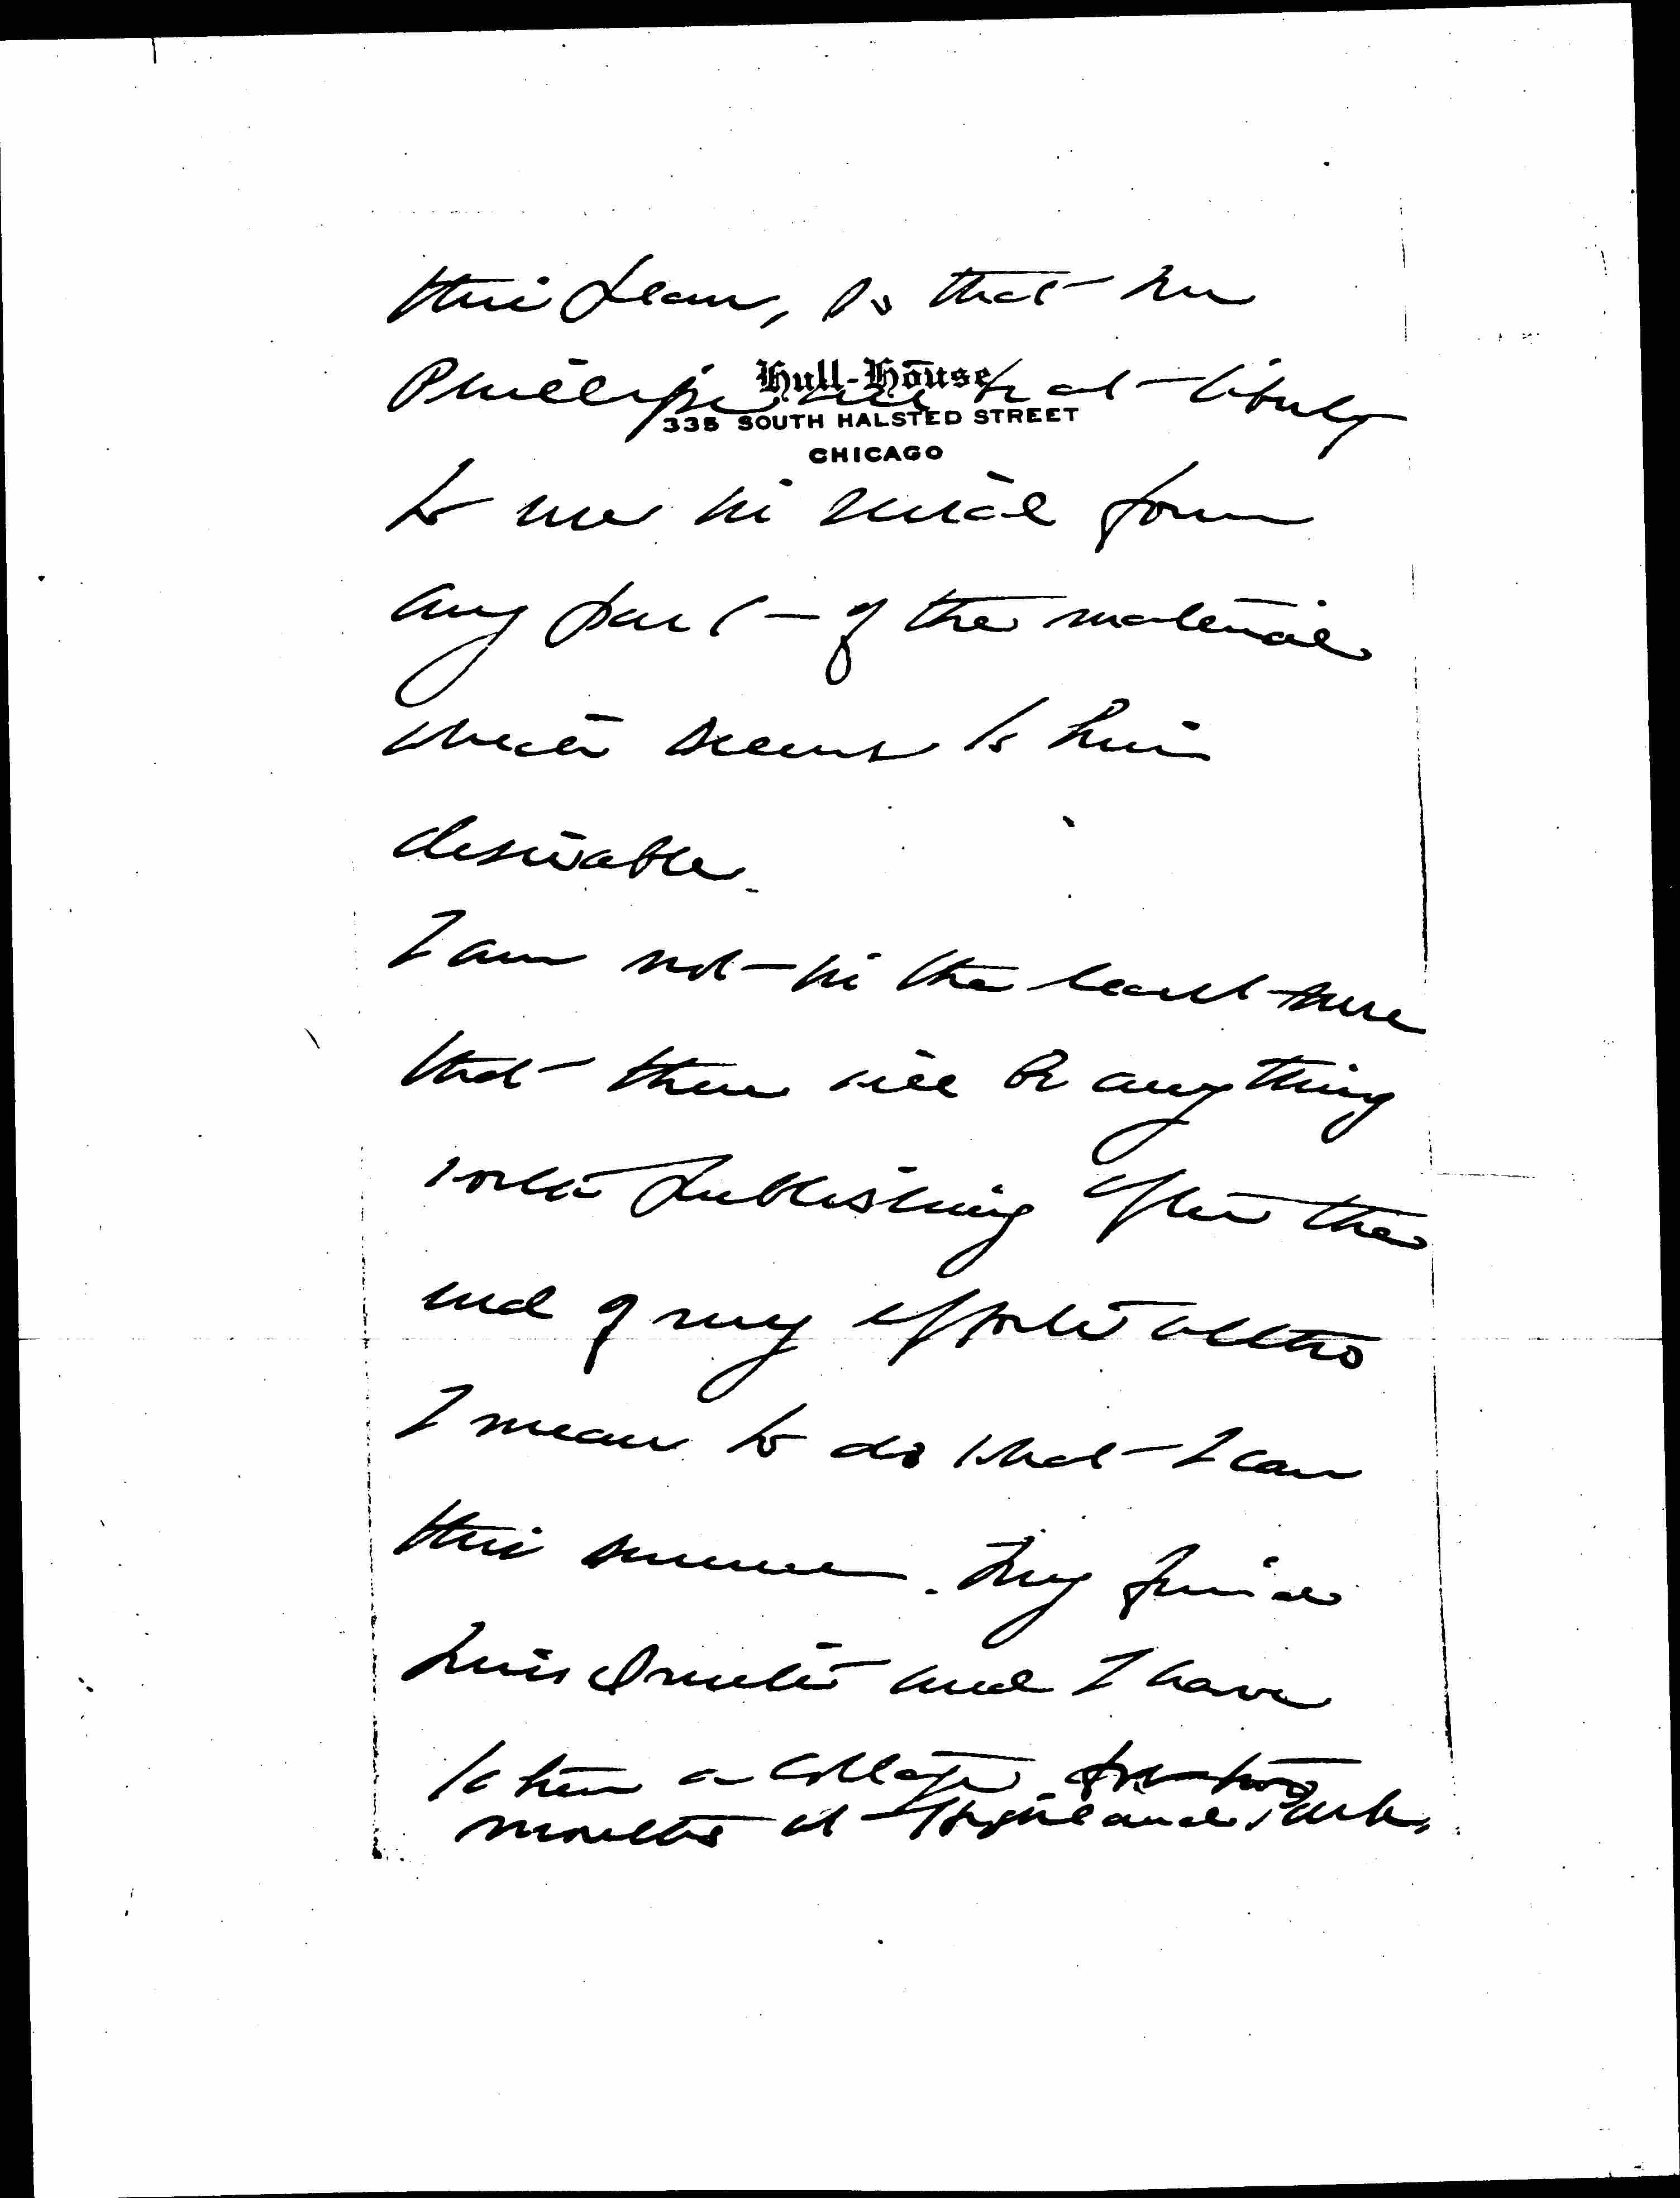 this plan, so that Mr
Phillips will be at liberty
Hull-House
335 SOUTH HALSTED STREET
CHICAGO
to use in serial form
any part of the material
which seems to him
desirable.
I am not in the least sure
that there will be anything
worth publishing after the
end of my efforts altho
I mean to do what I can
this summer. My friend
Miss Smith and I have
taken a cottage for two
months at Highland Park,